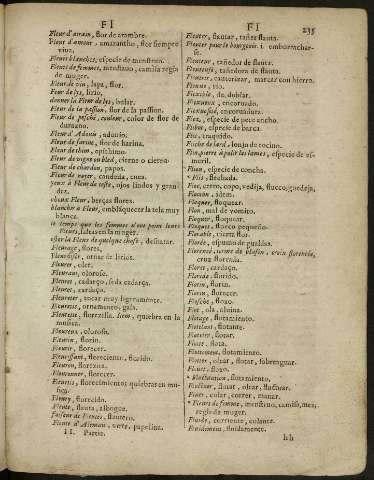 F I
F I
235
Fleur d'airain, flor de arambre.
Fleur d'amour, amarantho, flor siempre
viva.
Fleurs blanches, especie de menstruo.
Fleurs de femmes, menstruo, camisa regla
de muger.
Fleur de vin, lapa, flor.
Fleur de lys, lirio.
donner la Fleur de lys,
Fleur de la passion, flor de la passion.
Fleur de pesché, couleur, color de flor de
durazno.
Fleur d'Adonis, adonio.
Fleur de farine, flor de harina.
Fleur de thim, epithimo.
Fleur de vignes en bled, cierne o cierna.
Fleur de chardon, papos.
Fleur de noyer, candela, cuca.
yeux à Fleur de teste, ojos lindos y gran-
dez.
choux Fleur, berças flores.
blanchir à Fleur, emblãquecer la tela muy
blanca.
le temps que les femmes n'ont point leurs
Fleurs,
estre la Fleur de quelque chose, desflorar.
Fleurage, flores.
Fleurdeliser, ornar de lirios.
Fleurer, oler.
Fleureur, oloroso.
Fleuret, cadarço, seda cadarça.
Fleuret, cardaço.
Fleureter, tocar muy ligeramente.
Fleuretis, ornamento, gala.
Fleurette, florezilla. Item, quiebra en la
musica.
Fleureux, oloroso.
Fleurin, florin.
Fleurir, florecer.
Fleurissant, floreciente, florido.
Fleuron, florezna.
Fleuronner, florecer.
Fleurtis, florecimiento, quiebras en mu-
sica.
Fleury, florecido.
Fleute, flauta, albogue.
faiseur de Fleutes, flautero.
Fleute d'Aleman, verre, papelina.
II. Partie.
Fleuter, flautar, tañer flauta.
Fleuter pour le bourgeois i. emborrachar-
se.
Fleuteur, tañedor de flauta.
Fleuteuse, tañedora de flauta.
Fleutrer, cauterizar, marcar con hierro.
Fleuve, rio.
Flexible, de doblar.
Flexueux, encorvado.
Flexuosité, encorvadura.
Flez, especie de pece ancho.
Flibot, especie de barca.
Flic, traquido.
Fliche de lard, lonja de tocino.
Flin, pierre à polir les lames, especie de es-
meril.
Flion, especie de concha.
* Flis, flechada.
Floc, cerro, copo, vedija, flueco, guedeja.
Flocon, idem.
Floquer, floquear.
Flon, mal de vomito.
Floquer, floquear.
Floquet, flueco pequeño.
Florable, cierta flor.
Florée, espuma de gualda.
Florencé, terme de blason, croix florencée,
cruz florenda.
Floret, cardaço.
Floride, florido.
Florin, florin.
Florir, florecer.
Floscée, floxo.
Flot, ola, ahina.
Flotage, flotamiento.
Flottant, flotante.
Flotter, flotar.
Flotte, flota.
Flottement, flotamiento.
Flotter, olear, flotar, sobreaguar.
Flouet, floxo.
* Fluctuation, flotamiento.
* Fluctuer, fluar, olear, fluctuar.
Fluer, colar, correr, manar.
* Fluers de femme, menstruo, camisa, mes,
regla de muger.
Fluide, corriente, colante.
Fluidement, fluidamente.
hh